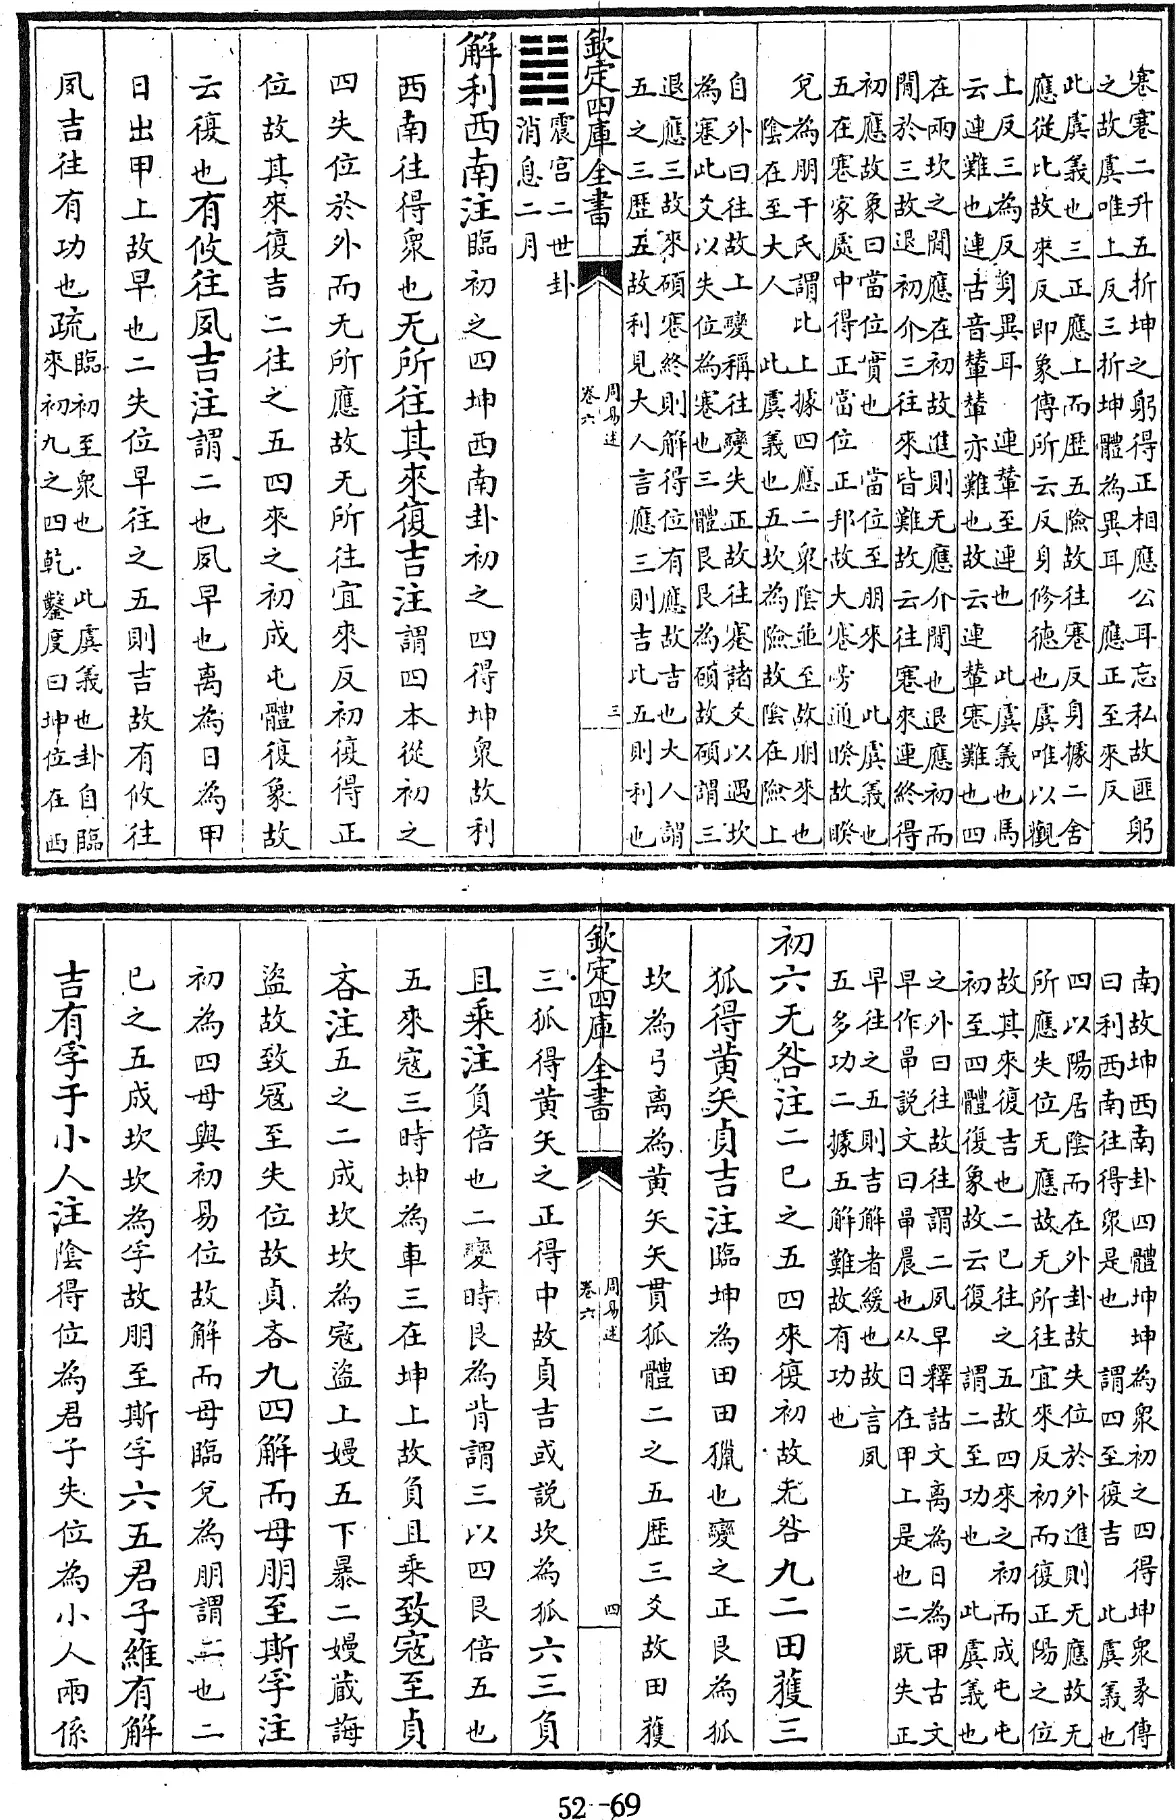 蹇蹇二升五折坤之躬得正相應公耳忘私故匪躬
之故虞唯上反三折坤體為異耳　應正至來反
此虞義也三正應上而歷五險故往蹇反身據二舍
應從比故來反即象傳所云反身修德也虞唯以觀
上反三為反身異耳　連輦至連也　此虞義也馬
云連難也連古音輦輦亦難也故云連輦蹇難也四
在兩坎之閒應在初故進則无應介閒也退應初而
閒於三故退初介三往來皆難故云往蹇來連終得
初應故象曰當位實也　當位至朋來　此虞義也
五在蹇家處中得正當位正邦故大蹇旁通睽故睽
兌為朋干氏謂比上據四應二衆陰並至故朋來也
陰在至大人　此虞義也五坎為險故陰在險上
自外曰往故上變稱往變失正故往蹇諸爻以遇坎
為蹇此爻以失位為蹇也三體艮艮為碩故碩謂三
退應三故來碩蹇終則解得位有應故吉也大人謂
五之三歷五故利見大人言應三則吉此五則利也
欽定四庫全書
周易述
卷六
三
震宮二世卦
消息二月
解利西南注臨初之四坤西南卦初之四得坤衆故利
西南往得衆也无所往其來復吉注謂四本從初之
四失位於外而无所應故无所往宜來反初復得正
位故其來復吉二往之五四來之初成屯體復象故
云復也有攸往夙吉注謂二也夙早也離為日為甲
日出甲上故早也二失位早往之五則吉故有攸往
夙吉往有功也疏臨初至衆也　此虞義也卦自臨
來初九之四乾鑿度曰坤位在西
南故坤西南卦四體坤坤為衆初之四得坤衆彖傳
曰利西南往得衆是也　謂四至復吉　此虞義也
四以陽居陰而在外卦故失位於外進則无應故无
所應失位无應故无所往宜來反初而復正陽之位
故其來復吉也二已往之五故四來之初而成屯屯
初至四體復象故云復　謂二至功也　此虞義也
之外曰往故往謂二夙早釋詁文離為日為甲古文
早作𣅊說文曰𣅊晨也从日在甲上是也二既失正
早往之五則吉解者緩也故言夙
五多功二據五解難故有功也
初六无咎注二已之五四來復初故无咎九二田獲三
狐得黃矢貞吉注臨坤為田田獵也變之正艮為狐
坎為弓離為黃矢矢貫狐體二之五歷三爻故田獲
欽定四庫全書
周易述
卷六
四
三狐得黃矢之正得中故貞吉或說坎為狐六三負
且乘注負倍也二變時艮為背謂三以四艮倍五也
五來寇三時坤為車三在坤上故負且乘致寇至貞
吝注五之二成坎坎為寇盜上嫚五下暴二嫚藏誨
盜故致寇至失位故貞吝九四解而母朋至斯孚注
初為四母與初易位故解而母臨兌為朋謂二也二
已之五成坎坎為孚故朋至斯孚六五君子維有解
吉有孚于小人注陰得位為君子失位為小人兩係
52-69